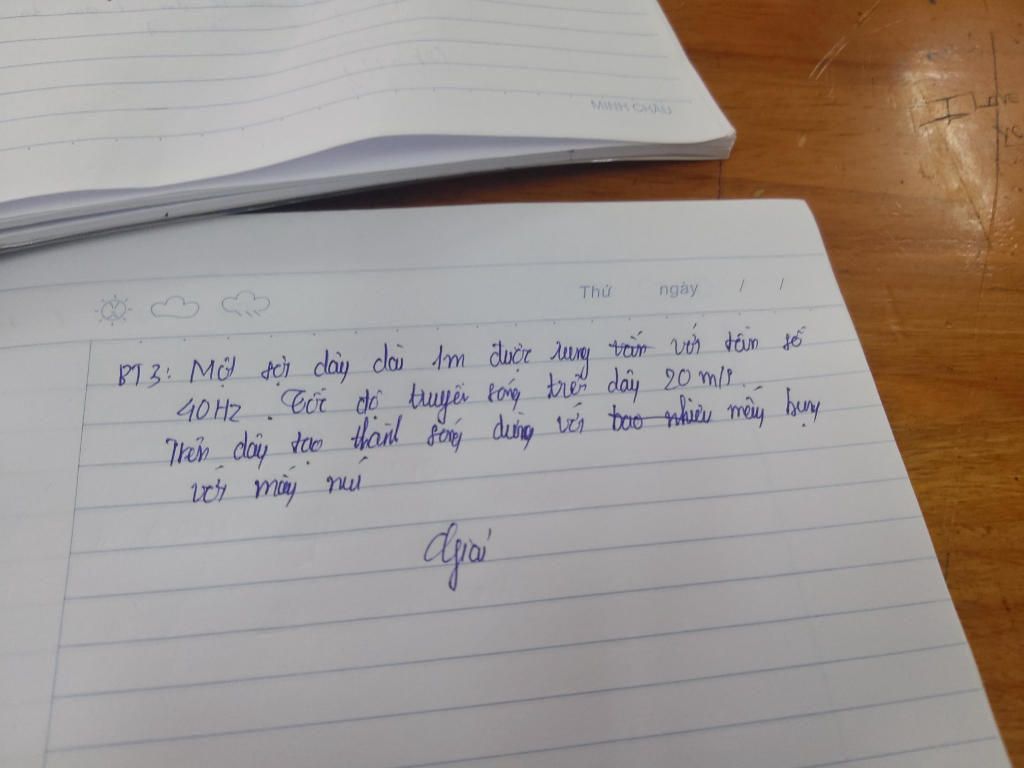 MINH CHÂU
Thứ ngày / /
BT3: Một sợi dây dài 1m được rung tần với tần số
40Hz. Tốc độ truyền sóng trên dây 20 m/s.
Trên dây tạo thành sóng dừng với bao nhiêu mấy bụng
với mấy nút
Giải